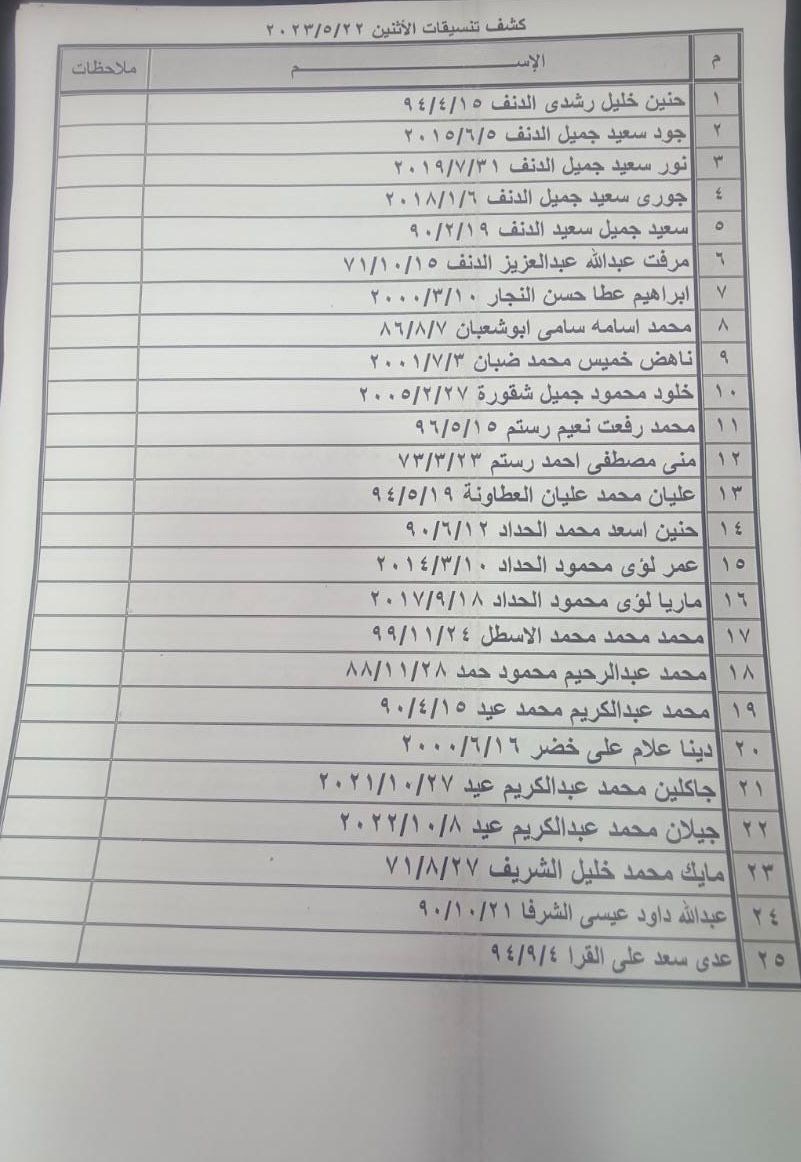 كشف تنسيقات الأثنين ٢٠٢٣/٥/٢٢
م الإســــــــــــــــــــــم ملاحظات
١ حنين خليل رشدى الدنف ٩٤/٤/١٥
٢ جود سعيد جميل الدنف ٢٠١٥/٦/٥
٣ نور سعيد جميل الدنف ٢٠١٩/٧/٣١
٤ جورى سعيد جميل الدنف ٢٠١٨/١/٦
٥ سعيد جميل سعيد الدنف ٩٠/٢/١٩
٦ مرفت عبدالله عبدالعزيز الدنف ٧١/١٠/١٥
٧ ابراهيم عطا حسن النجار ٢٠٠٠/٣/١٠
٨ محمد اسامه سامى ابوشعبان ٨٦/٨/٧
٩ ناهض خميس محمد ضبان ٢٠٠١/٧/٣
١٠ خلود محمود جميل شقورة ٢٠٠٥/٢/٢٧
١١ محمد رفعت نعيم رستم ٩٦/٥/١٥
١٢ منى مصطفى احمد رستم ٧٣/٣/٢٣
١٣ عليان محمد عليان العطاونة ٩٤/٥/١٩
١٤ حنين اسعد محمد الحداد ٩٠/٦/١٢
١٥ عمر لؤى محمود الحداد ٢٠١٤/٣/١٠
١٦ ماريا لؤى محمود الحداد ٢٠١٧/٩/١٨
١٧ محمد محمد محمد الاسطل ٩٩/١١/٢٤
١٨ محمد عبدالرحيم محمود حمد ٨٨/١١/٢٨
١٩ محمد عبدالكريم محمد عيد ٩٠/٤/١٥
٢٠ دينا علام على خضر ٢٠٠٠/٦/١٦
٢١ جاكلين محمد عبدالكريم عيد ٢٠٢١/١٠/٢٧
٢٢ جيلان محمد عبدالكريم عيد ٢٠٢٢/١٠/٨
٢٣ مايك محمد خليل الشريف ٧١/٨/٢٧
٢٤ عبدالله داود عيسى الشرفا ٩٠/١٠/٢١
٢٥ عدى سعد على القرا ٩٤/٩/٤